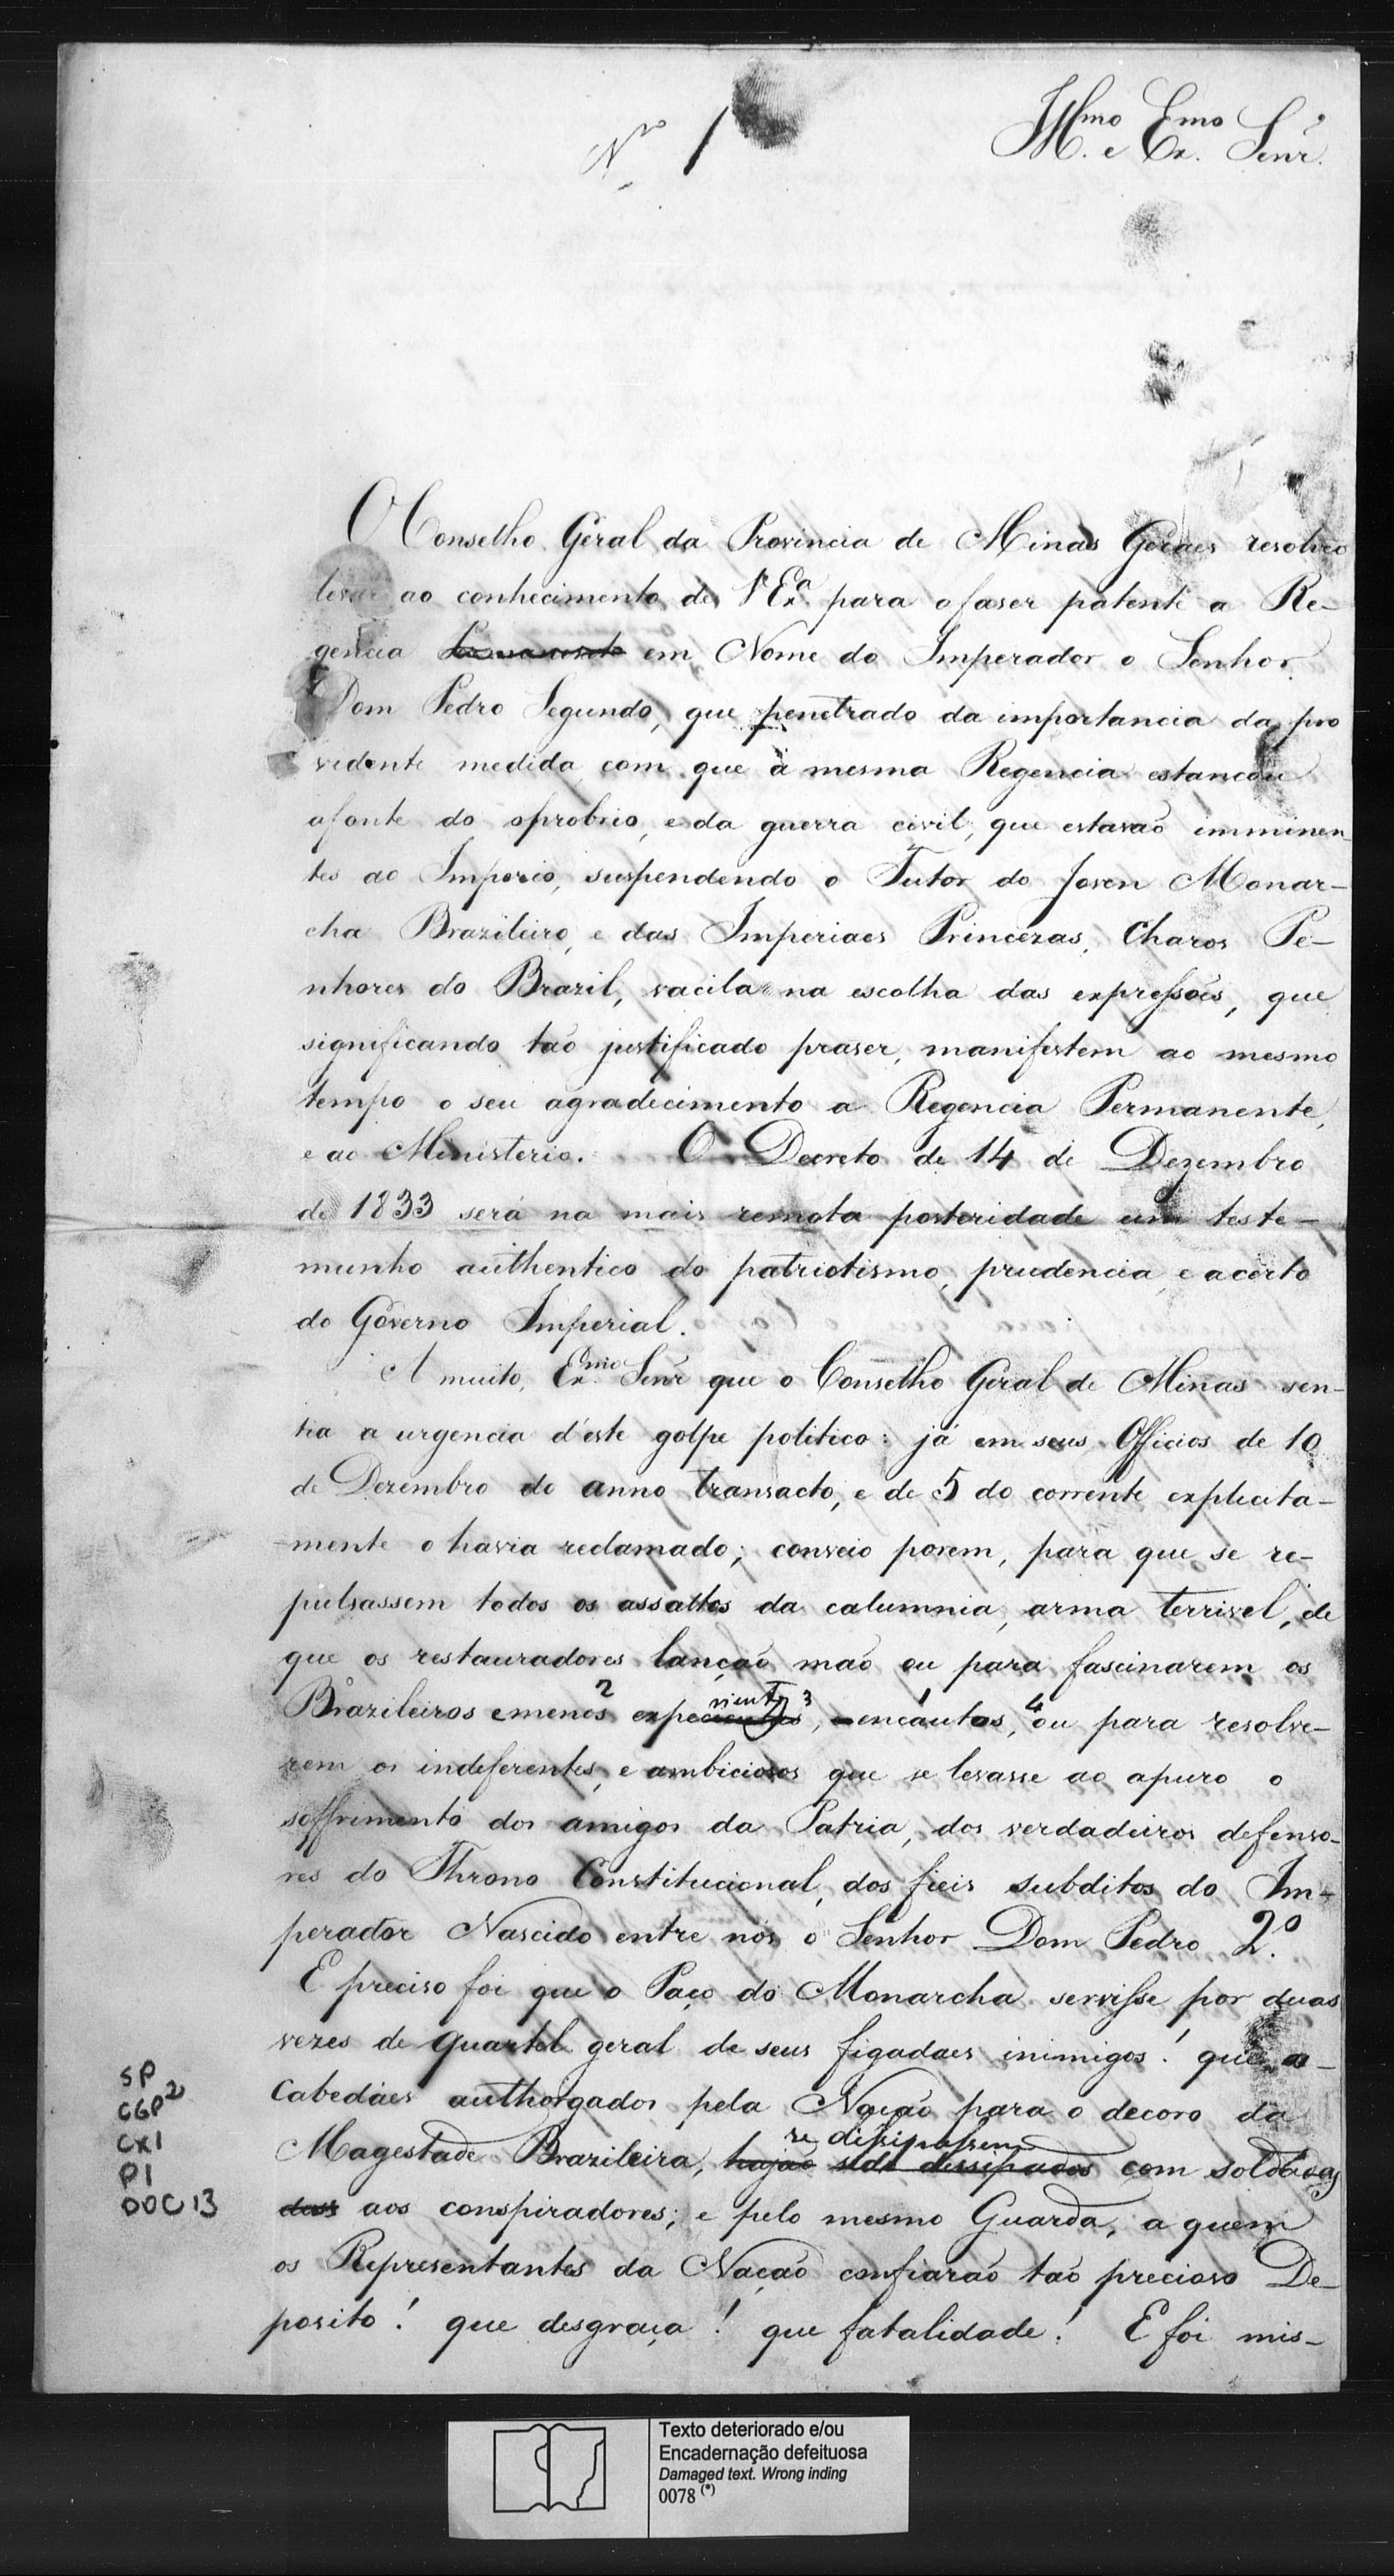 Nº 1
Illmo e Exmo Senr.
O Conselho Geral da Provincia de Minas Geraes resolveo
levar ao conhecimento de V Exª para o faser patente a Re-
gencia em Nome do Imperador o Senhor
Dom Pedro Segundo, que penetrado da importancia da pro
vidente medida com que a mesma Regencia estancou
a fonte do oprobrio, e da guerra civil, que estavaõ imminen
tes ao Imperio, suspendendo o Tutor do Joven Monar-
cha Brazileiro, e das Imperiaes Princezas, Charos Pe-
nhores do Brazil, vacila na escolha das expressões, que
significando taõ justificado praser, manifestem ao mesmo
tempo o seu agradecimento a Regencia Permanente,
e ao Ministerio. O Decreto de 14 de Dezembro
de 1833 será na mais remota posteridade um teste-
munho authentico do patriotismo, prudencia, e acerto
do Governo Imperial.
A muito, Exmo Senr que o Conselho Geral de Minas sen-
tia a urgencia d'este golpe politico: já em seus Officios de 10
de Dezembro do anno transacto, e de 5 do corrente explicita-
mente o havia reclamado; conveio porem, para que se re-
pulsassem todos os assaltos da calumnia, arma terrivel, de
que os restauradores lançaõ maõ ou para fascinarem os
Brazileiros e menos 2 experientes 3, encautos, 4 ou para resolve-
rem os indeferentes, e ambiciosos que se levasse ao apuro o
soffrimento dos amigos da Patria, dos verdadeiros defenso-
res do Throno Constitucional, dos fieis subditos do Im-
perador Nascido entre nós o Senhor Dom Pedro 2.º
E preciso foi que o Paço do Monarcha servisse por duas
vezes de quartel geral de seus figadaes inimigos! que
Cabedáes authorgados pela Naçaõ para o decoro da
se disipassem
Magestade Brazileira, hajaõ sido dissipados com soldadas
aos conspiradores; e pelo mesmo Guarda, a quem
os Representantes da Naçaõ confiaraõ taõ precioso De-
posito! que desgraça! que fatalidade! E foi mis-
SP
CGP2
CX1
P1
DOC 13
Texto deteriorado e/ou
Encadernação defeituosa
Damaged text. Wrong inding
0078 (*)